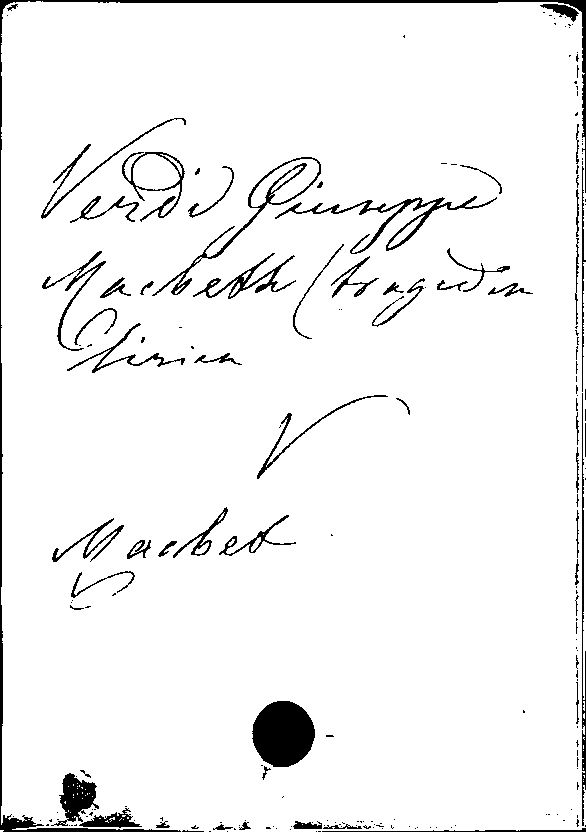 Verdi Giuseppe
Macbeth (tragedia
lirica
V
Macbet